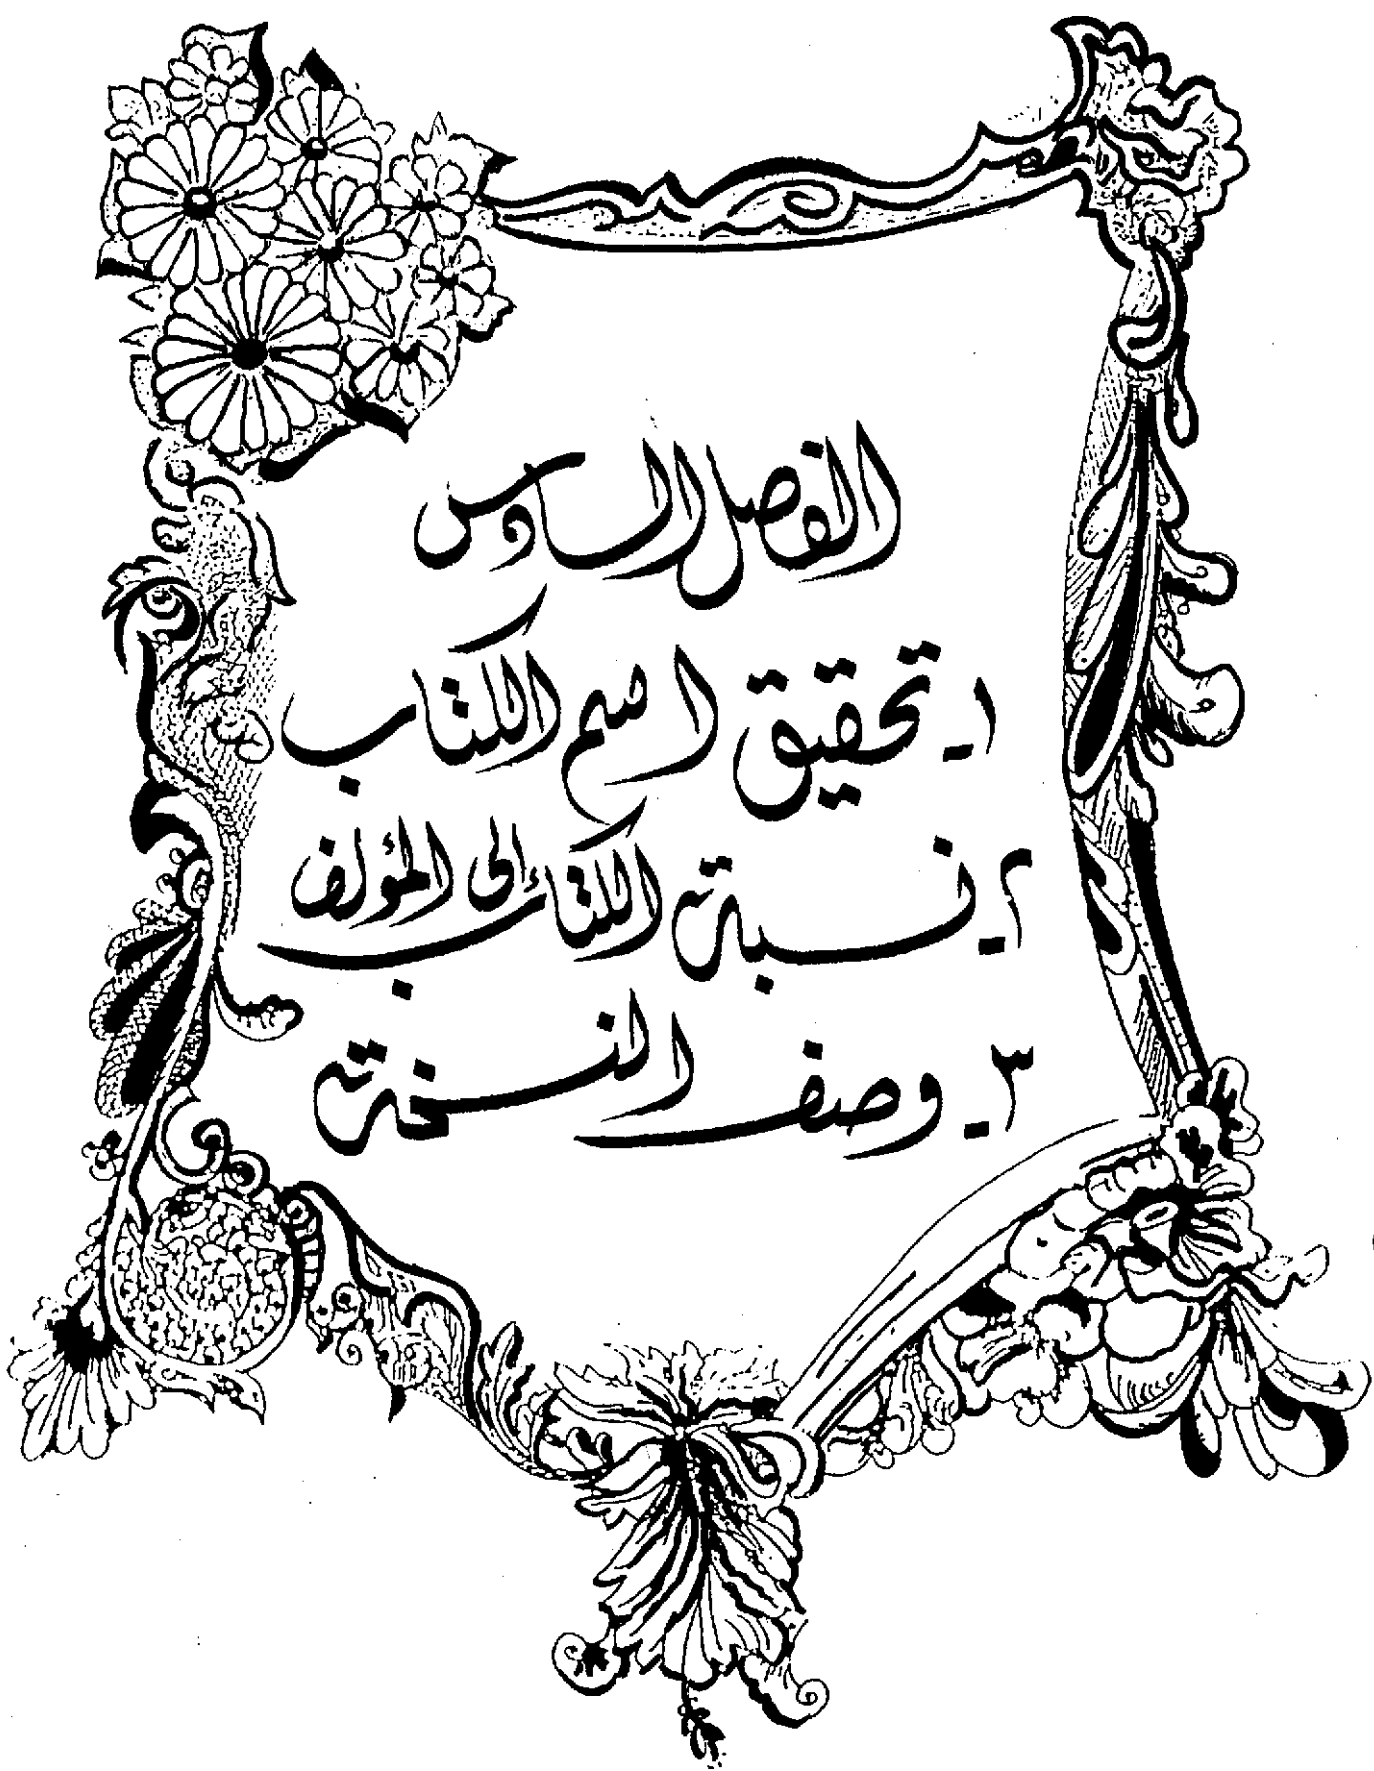 الفصل السادس
١ـ تحقيق اسم الكتاب
٢ـ نسبة الكتاب إلى المؤلف
٣ـ وصف النسخة